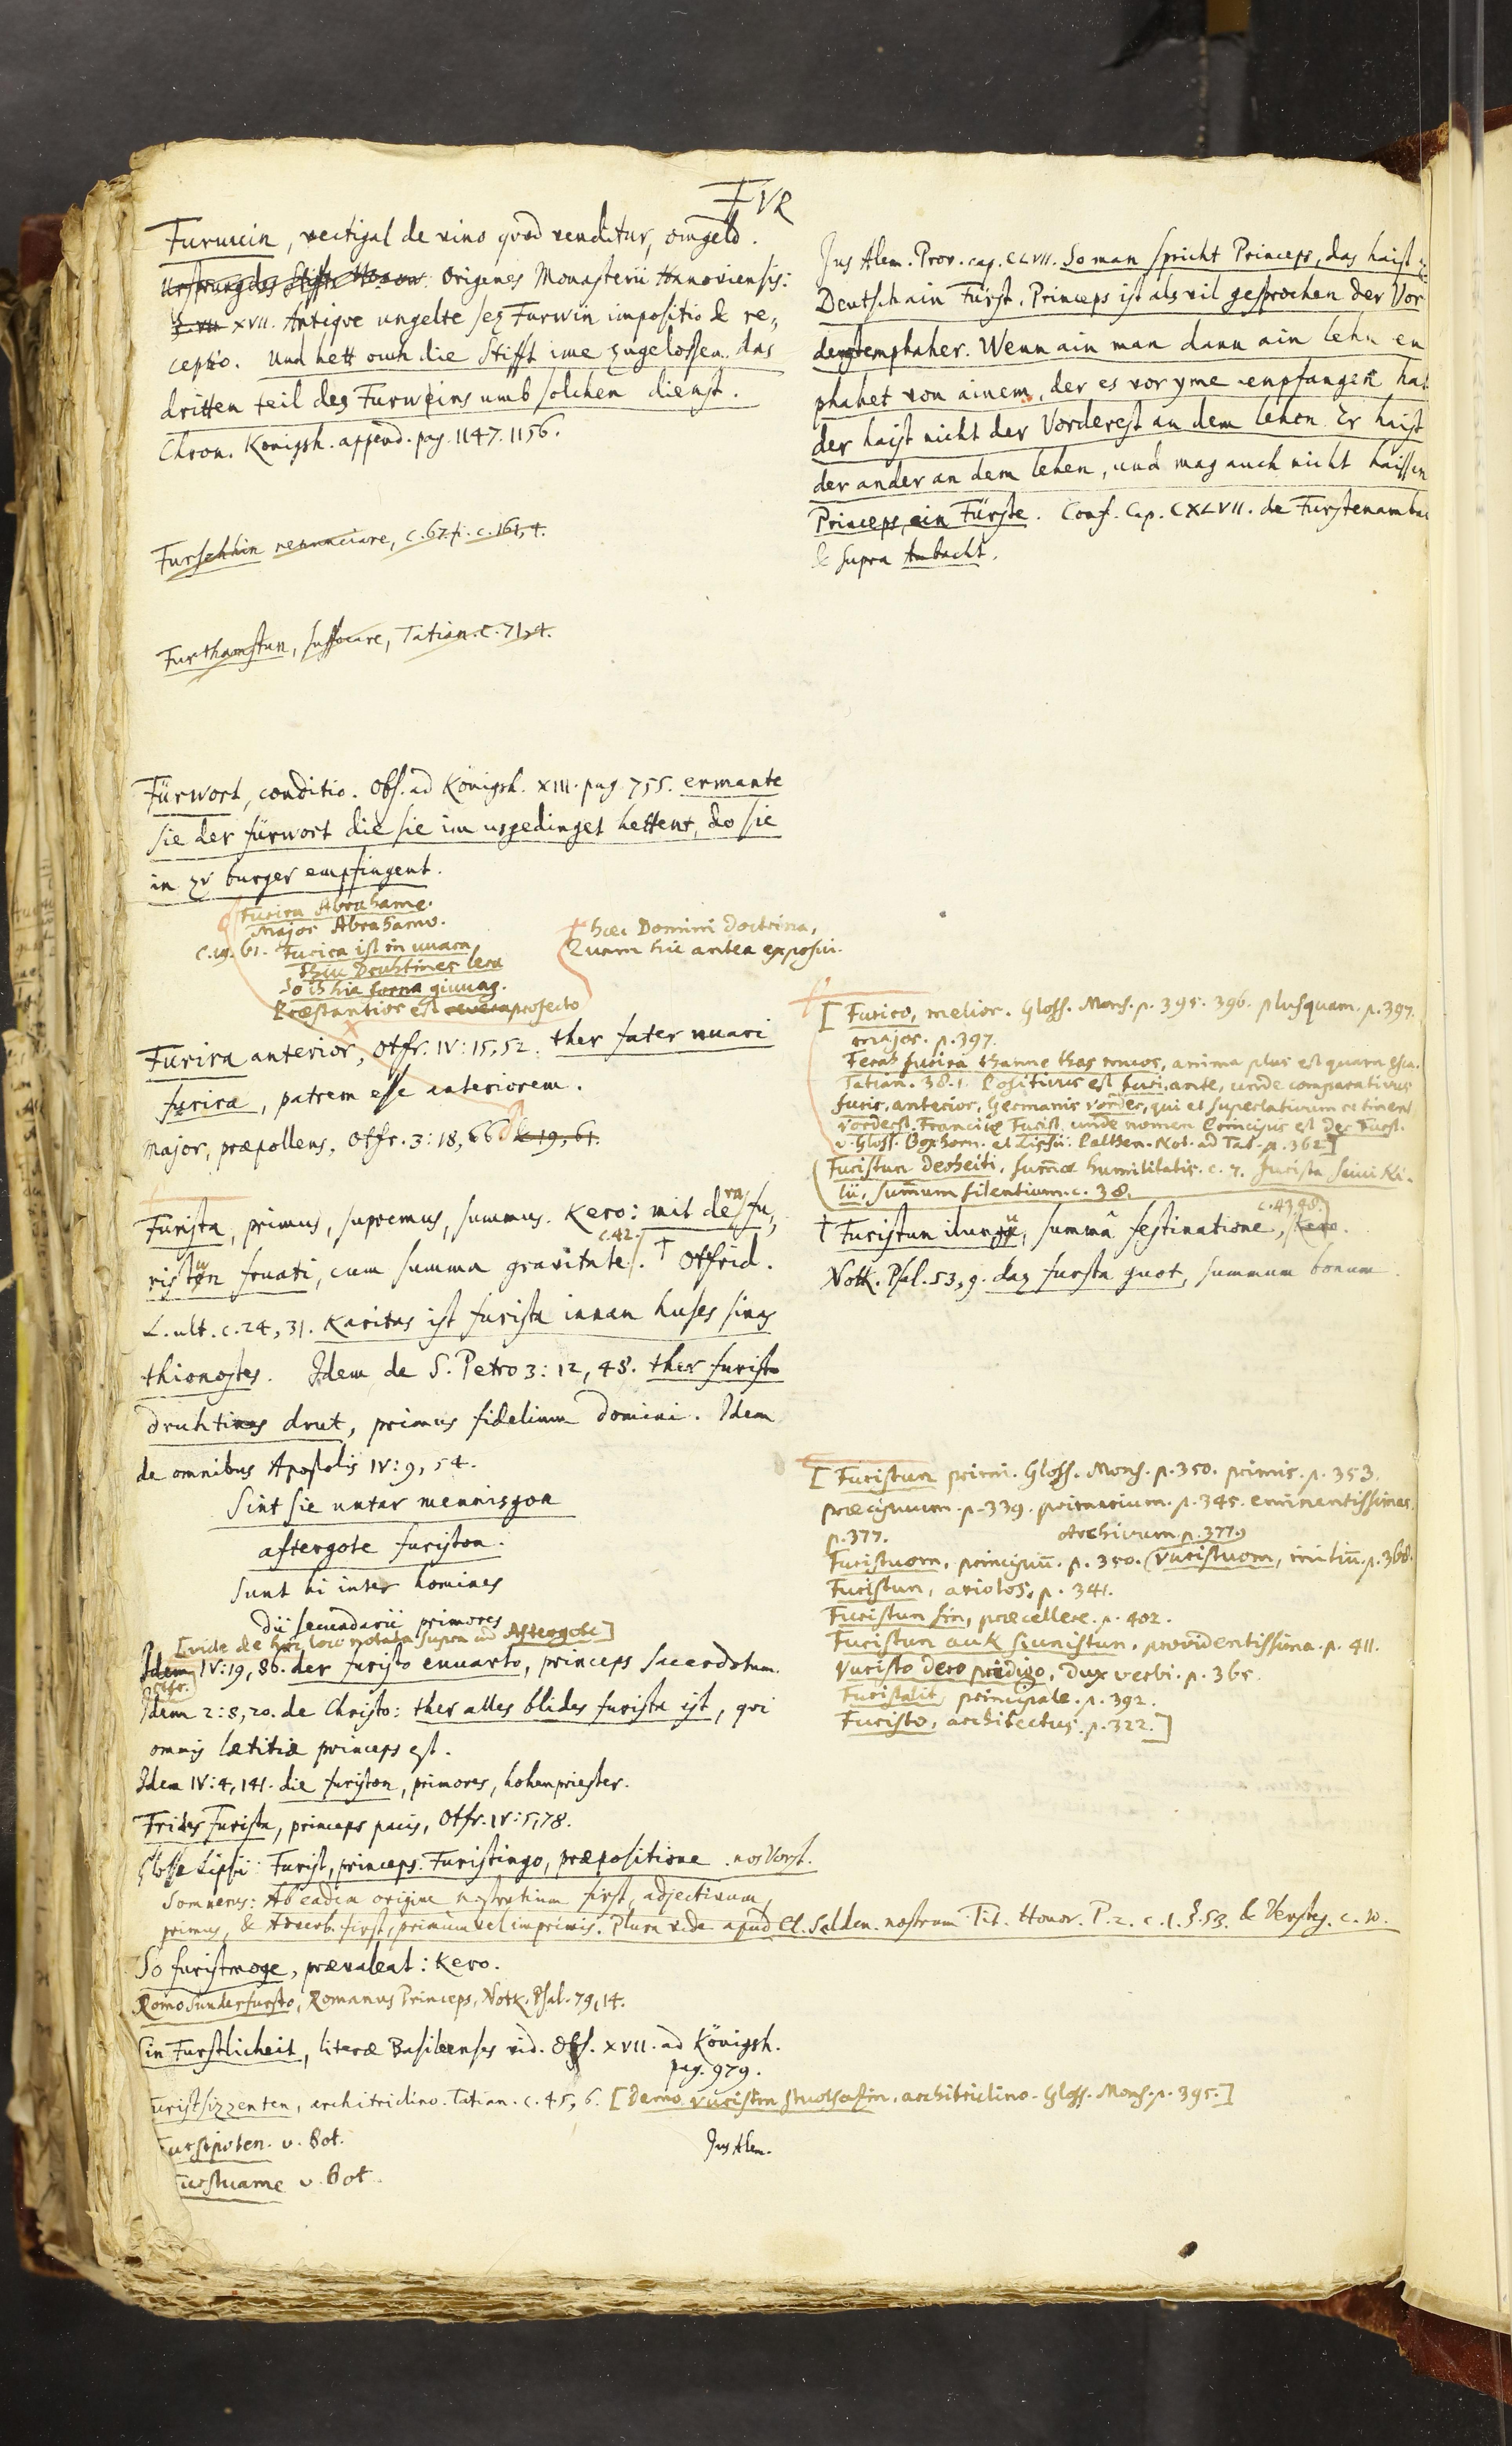 FVR
Furwein, vectigal de vino quod venditur, omgeld.
Ursprung des Stiffts Origines Monasterii Hanoviensis:
XVII. Antique ungelte sez Furwin impositio & re,,
ceptio. Und hett ouch die Stifft ime zugelossen das
dritten teil dez Furweins umb solchen dienst.
Chron. Konigsh. append. pag. 1147. 1156.
Furschhin renunciare, c. 67. c. 161, 4.
Furthamstun, suffocare, Tatian. c. 71, 4.
Fürwort, conditio. Obs. ad Königsh. XIII. pag. 755. ermante
sie der fürwort die sie im usgedinget hettent, do sie
in zů burger empfingent.
Furira Abrahame.
Major Abrahamo.
c. 19. 61. Furira ist in wara,
thiu Druhtines lera
So ih hia forna giwuag.
Præstantior est profecto
hæc Domini doctrina,
Quam hic antea exposui.
Furira anterior, Otfr. IV: 15, 52. ther fater wari
furira, patrem esse anteriorem.
major, præpollens. Otfr. 3: 18, 66 & 19, 61.
Furista, primus, supremus, summus. Kero: mit dera fu,,
ristun fruati, cum summa gravitate c. 42. † Otfrid.
L. ult. c. 24, 31. Karitas ist furista innan huses sines
thionostes. Idem de S. Petro 3: 12, 48. ther furisto
druhtines drut, primus fidelium domini. Idem
de omnibus Apostolis IV: 9, 54.
Sint sie untar mennisgon
aftergote furiston.
Sunt hi inter homines
Dii secundarii primores
[vide de hoc loco notata supra ad Aftergote]
Idem Otfr. IV: 19, 86. der furisto ewarto, princeps sacerdotum.
Idem 2: 8, 20. de Christo: ther alles blides furista ist, qvi
omnis lætitiæ princeps est.
Idem IV: 4, 141. die furiston, primores, hohenpriester.
Frides Furista, princeps pacis, Otfr. IV: 5, 78.
Glossæ Lipsii: Furist, princeps. Furistingo, præpositione. nos Vorst.
Somnerus: Ab eadem origine nostratium first, adjectivum,
primus, & Adverb. first, primum vel imprimis. Plura vide apud Cl. Selden. nostrum Tit. Honor. P. 2. c. 1. §. 53. & Versteg. c. 10.
So furistmoge, prævaleat: Kero.
Romo sunderfursto, Romanus Princeps, Notk. Psal. 79, 14.
Ein Furstlicheit, literæ Basileenses vid. Obs. XVII. ad Königsh.
pag. 979.
Furistsizzenten, architriclino. Tatian. c. 45, 6. [Demo vuristin stuolsazin. architriclino. Gloss. Mons. p. 395.]
Furstpoten. v. Bot.
Furstuame v. Bot.
Jus Alem.
Jus Alem. Prov. cap. CLVII. So man spricht Princeps, das haist
Deutsch ain Fürst. Princeps ist als vil gesprochen der Vor
derst emphaher. Wenn ain man dann ain lehn en
phahet von ainem, der es vor yme enpfangen hat
der haist nicht der Vorderest an dem lehen. Er haist
der ander an dem lehen, und mag auch nicht haissen
Princeps, ein Fürste. Conf. Cap. CXLVII. de Furstenambac
& supra Ambacht.
[Furiro, melior. Gloss. Mons. p. 395. 396. plusquam. p. 397.
major. p. 397.
Ferah furira thanne thaz muos, anima plus est quam esca.
Tatian. 38. 1. Positivus est furi, ante, unde comparativus
furir, anterior, Germanis vorder, qui et superlativum retinent
vorderst. Francis Furist, unde nomen Principis est Der Furst.
v. Gloss. Boxhorn. et Lipsii. Palthen. Not. ad Tat. p. 362.]
Furistun deoheiti, summæ humilitatis. c. 7. Furista suuiki,
lii, summum silentium. c. 38.
† Furistun ilungu, summâ festinatione, c. 43. 48. Kero.
Notk. Psal. 53, 9. daz fursta guot, summum bonum.
[Furistun primi. Gloss. Mons. p. 350. primis. p. 353.
præcipuum. p. 339. primarium. p. 345. eminentissimas.
p. 377. Archivum p. 377.
Furistuom, principiū. p. 350. (Vuristuom, initiū. p. 368.
Furistun, ariolos. p. 341.
Furistun sin, præcellere. p. 402.
Furistun auk siunistun, providentissima. p. 411.
Vuristo dero predigo, Dux verbi. p. 365.
Furistalit, principale. p. 392.
Furisto, architectus. p. 322.]